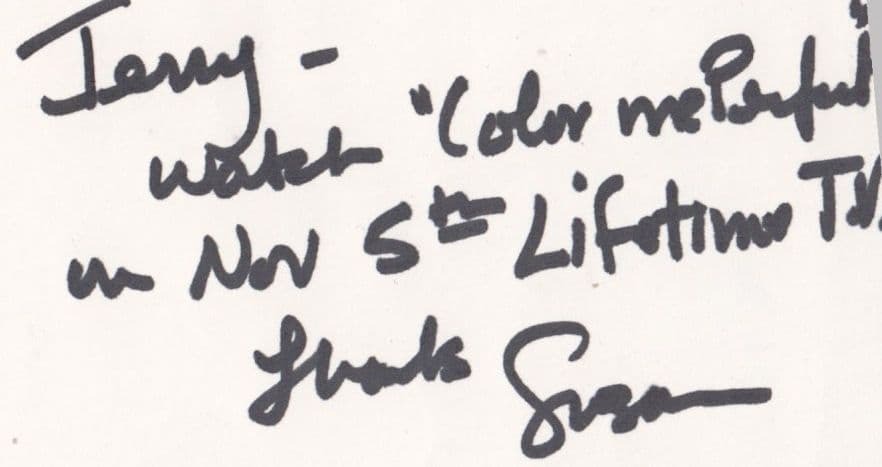 Jerry -
watch "Color me Perfect"
on Nov 5th Lifetime TV.
Thanks Susan